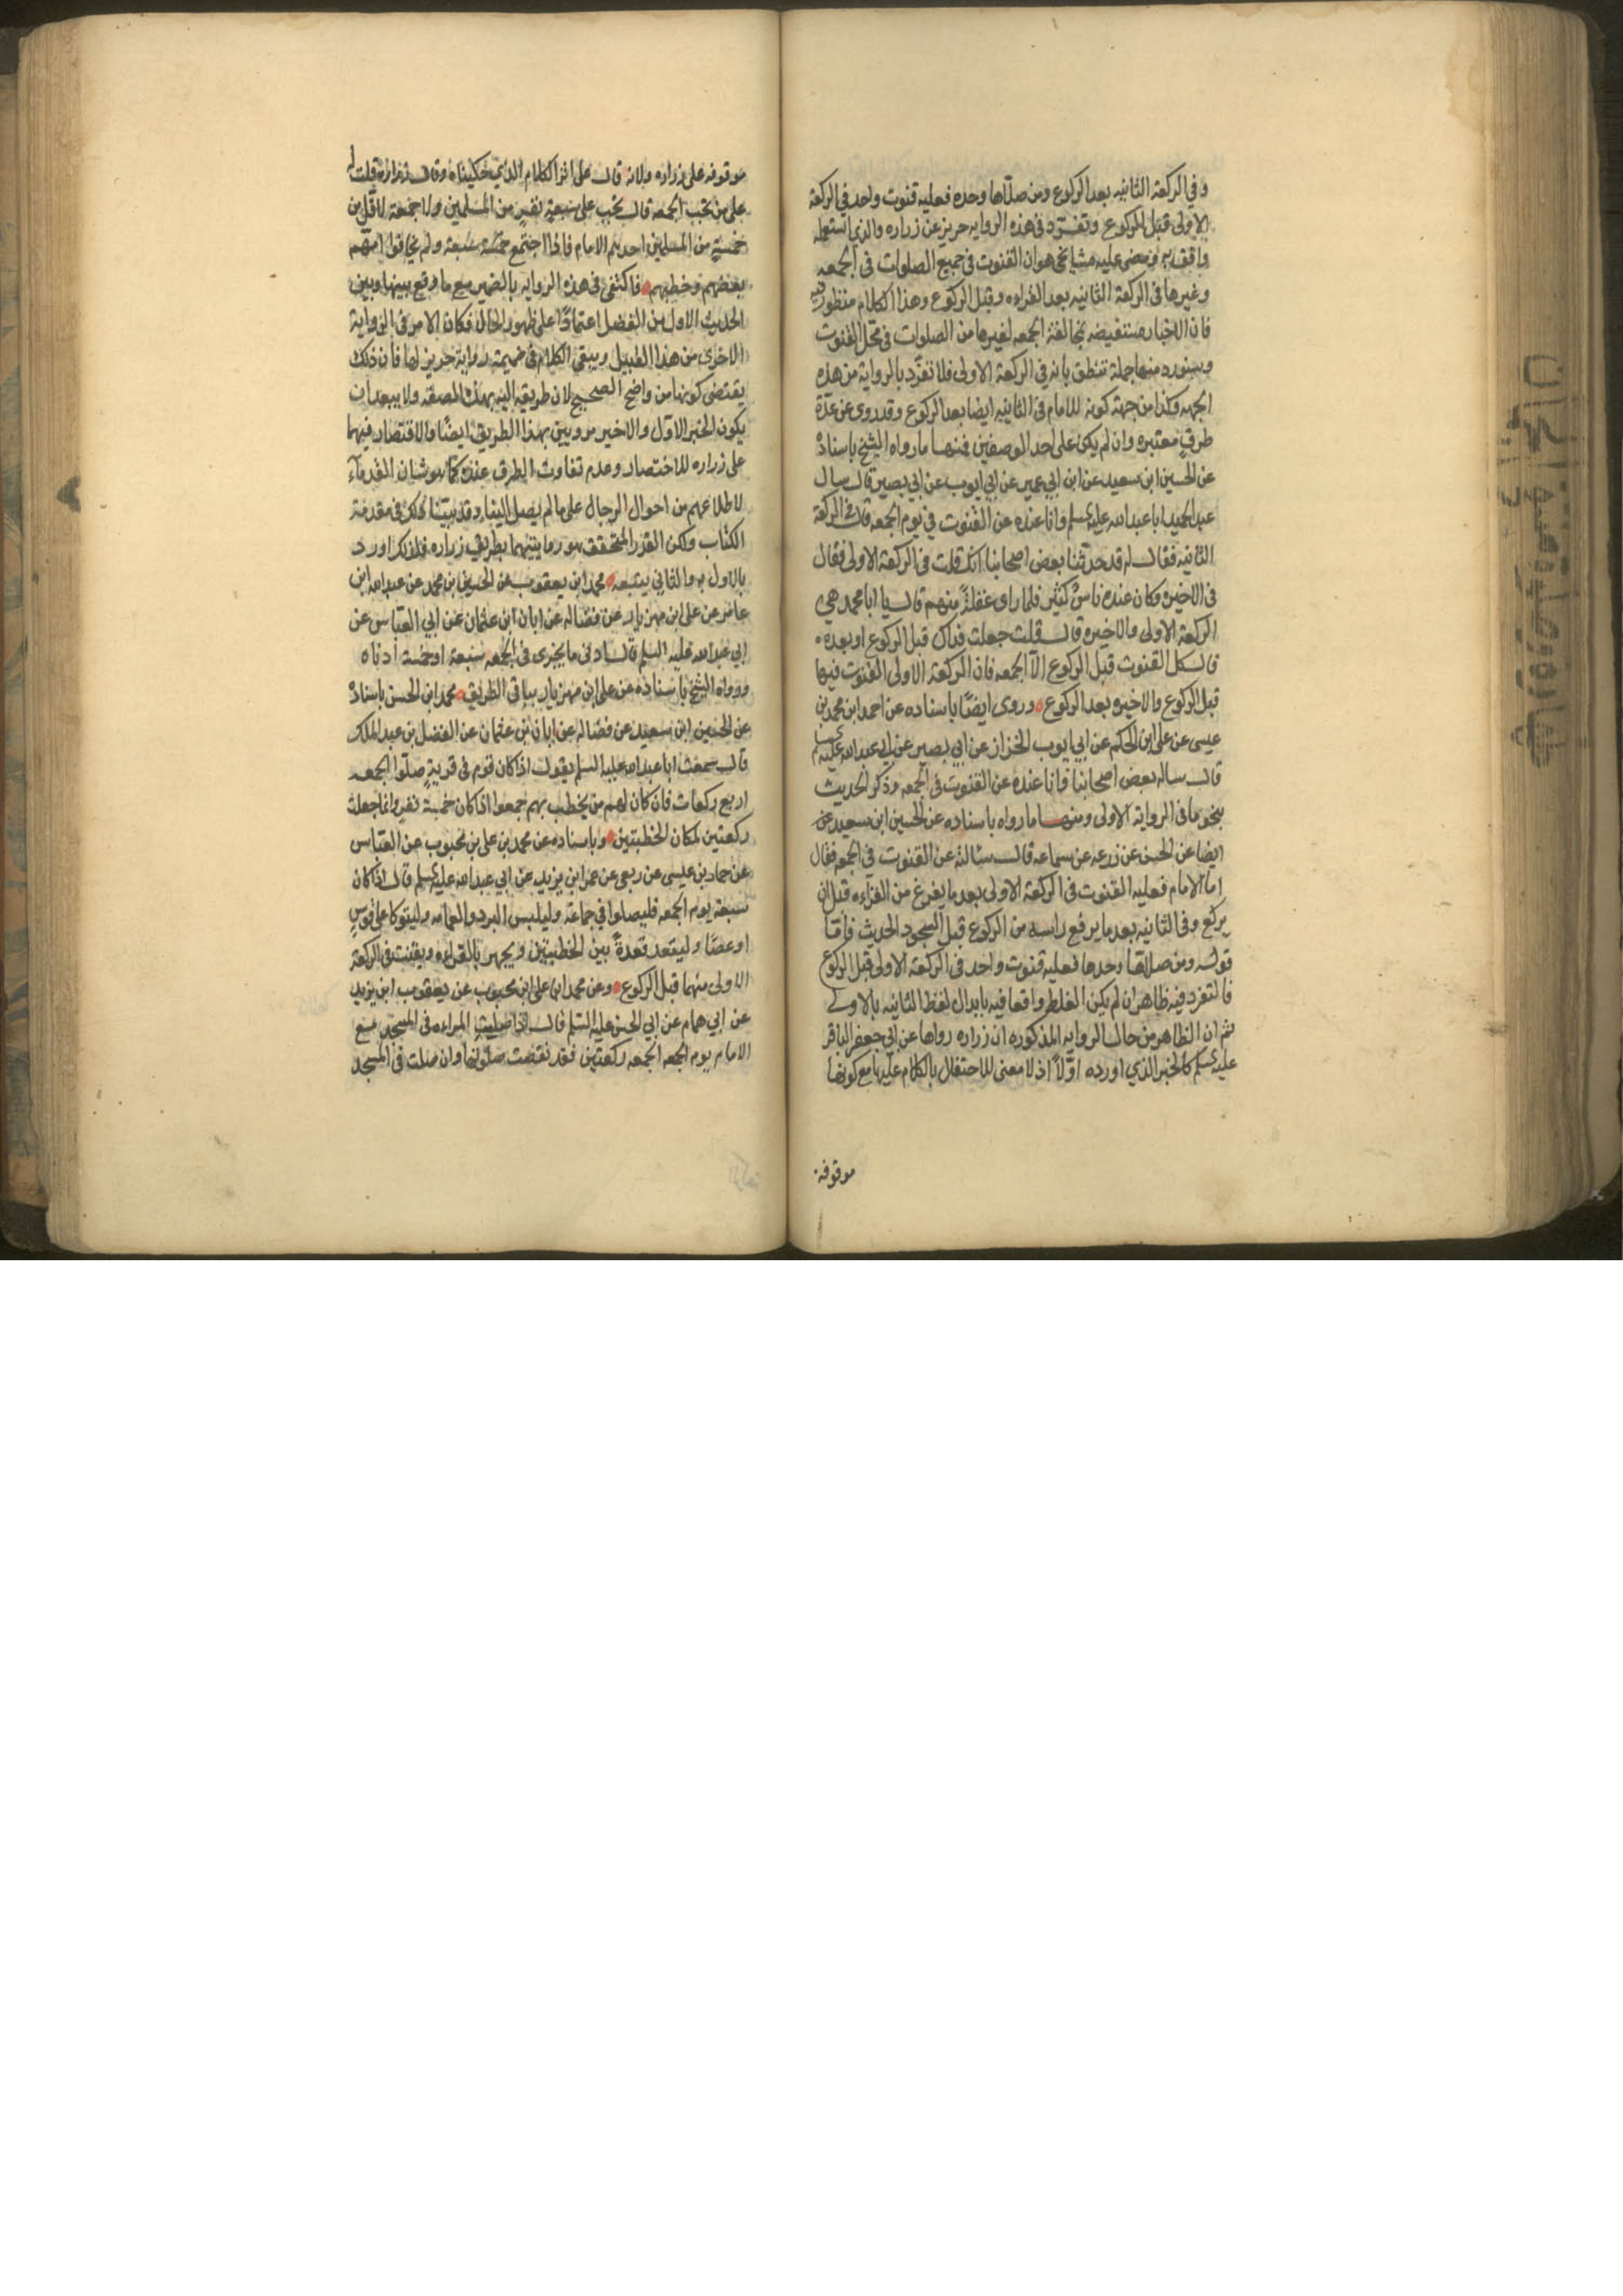 وفي الركعة الثانيه بعد الركوع ومن صلاها وحده فعليه قنوت واحد في الركعة
الاولى قبل الركوع وتفرّد في هذه الروايه حريز عن زراره والذي استعمله
وافتى به ومضى عليه مشايخي هو ان القنوت في جميع الصلوات في الجمعه
وغيرها في الركعة الثانيه بعد القراءه وقبل الركوع وهذا الكلام منظور فيه
فان الاخبار مستفيضه بمخالفة الجمعه لغيرها من الصلوات في محل القنوت
وسنورد منها جملة تنطق بانه في الركعة الاولى فلا تفرّد بالرواية من هذه
الجهه وكذا من جهة كونه للامام في الثانيه ايضا بعد الركوع وقد روى عن عدّة
طرق معتبره وان لم يكن على احد الوصفين فمنها ما رواه الشيخ باسناده
عن الحسين ابن سعيد عن ابن ابي عمير عن ابي ايوب عن ابي بصير قال سال
عبد الحميد ابا عبد الله عليه السلم وانا عنده عن القنوت في يوم الجمعه قال في الركعة
الثانيه فقال له قد حدثنا بعض اصحابنا انك قلت في الركعة الاولى فقال
في الاخيره وكان عنده ناس كثير فلما راى غفلةً منهم قال يا ابا محمد هي
الركعة الاولى والاخيره قال قلت جعلت فداك قبل الركوع او بعده
قال كل القنوت قبل الركوع الا الجمعه فان الركعة الاولى القنوت فيها
قبل الركوع والاخيره بعد الركوع وروى ايضًا باسناده عن احمد ابن محمد بن
عيسى عن على ابن الحكم عن ابي ايوب الخزاز عن ابي بصير عن ابي عبد الله عليه السلم
قال ساله بعض اصحابنا وانا عنده عن القنوت في الجمعه وذكر الحديث
بنحو ما في الرواية الاولى ومنها ما رواه باسناده عن الحسين ابن سعيد عن
ايضا عن الحسن عن زرعه عن سماعه قال سئالته عن القنوت في الجمعه فقال
اما الامام فعليه القنوت في الركعة الاولى بعد ما يفرغ من القراءه قبل ان
يركع وفي الثانيه بعد ما يرفع راسه من الركوع قبل السجود الحديث فامّا
قوله ومن صلاها وحدها فعليه قنوت واحد في الركعة الاولى قبل الركوع
فالتفرد فيه ظاهر ان لم يكن الغلط واقعا فيه بابدال لفظ الثانيه بالاولى
ثم ان الظاهر من حال الروايه المذكوره ان زراره رواها عن ابي جعفر الباقر
عليه السلم كالخبر الذي اورده اوّلًا اذ لا معنى للاحتفال بالكلام عليها مع كونها
موقوفه
موقوفه على زراره ولانه قال على اثر الكلام الذي حكيناه وقال زراره قلت له
على من تجب الجمعه قال تجب على سبعة نفرٍ من المسلمين ولا جمعة لاقل من
خمسةٍ من المسلمين احدهم الامام فاذا اجتمع سبعة ولم يخافوا امّهم
بعضهم وخطبهم فاكتفى في هذه الروايه بالضمير مع ما وقع بينها وبين
الحديث الاول من الفصل اعتمادًا على ظهور الحال فكان الامر في الرواية
الاخرى من هذا القبيل ويبقى الكلام في ضميمة رواية حريز لها فان ذلك
يقتضى كونها من واضح الصحيح لان طريقه اليه بهذه الصفه ولا يبعد ان
يكون الخبر الاوّل والاخير مرويين بهذا الطريق ايضًا والاقتصار فيهما
على زراره للاختصار وعدم تفاوت الطرق عنده كما هو شان القدماء
لاطلاعهم من احوال الرجال على ما لم يصل الينا وقد بيّنا ذلك في مقدمة
الكتاب ولكن القدر المتحقق هو روايتهما بطريق زراره فلذلك اورد
بالاول والثاني يتبعه محمد ابن يعقوب عن الحسين بن محمد عن عبد الله ابن
عامر عن على ابن مهزيار عن فضاله عن ابان ابن عثمان عن ابي العباس عن
ابي عبد الله عليه السلم قال ادنى ما يجزى في الجمعه سبعة او خمسة ادناه
ورواه الشيخ باسناده عن على ابن مهزيار بباقى الطريق محمد ابن الحسن باسناده
عن الحسين ابن سعيد عن فضاله عن ابان بن عثمان عن الفضل بن عبد الملك
قال سمعت ابا عبد الله عليه السلم يقول اذا كان قوم في قريةٍ صلّوا الجمعه
اربع ركعات فان كان لهم من يخطب بهم جمعوا اذا كان خمسة نفر وانما جعلت
ركعتين لمكان الخطبتين وباسناده عن محمد بن على بن محبوب عن العباس
عن حماد بن عيسى عن ربعى عن عمر ابن يزيد عن ابي عبد الله عليه السلم قال اذا كان
سبعة يوم الجمعه فليصلوا في جماعة وليلبس البرد والعمامه وليتوكا على قوسٍ
او عصًا وليقعد قعدةً بين الخطبتين ويجهر بالقراءه ويقنت في الركعة
الاولى منهما قبل الركوع وعن محمد ابن على ابن محبوب عن يعقوب ابن يزيد
عن ابي همام عن ابي الحسن عليه السلم قال اذا صليت المراءه في المسجد مع
الامام يوم الجمعه الجمعه ركعتين فقد نقصت صلوتها وان صلت في المسجد